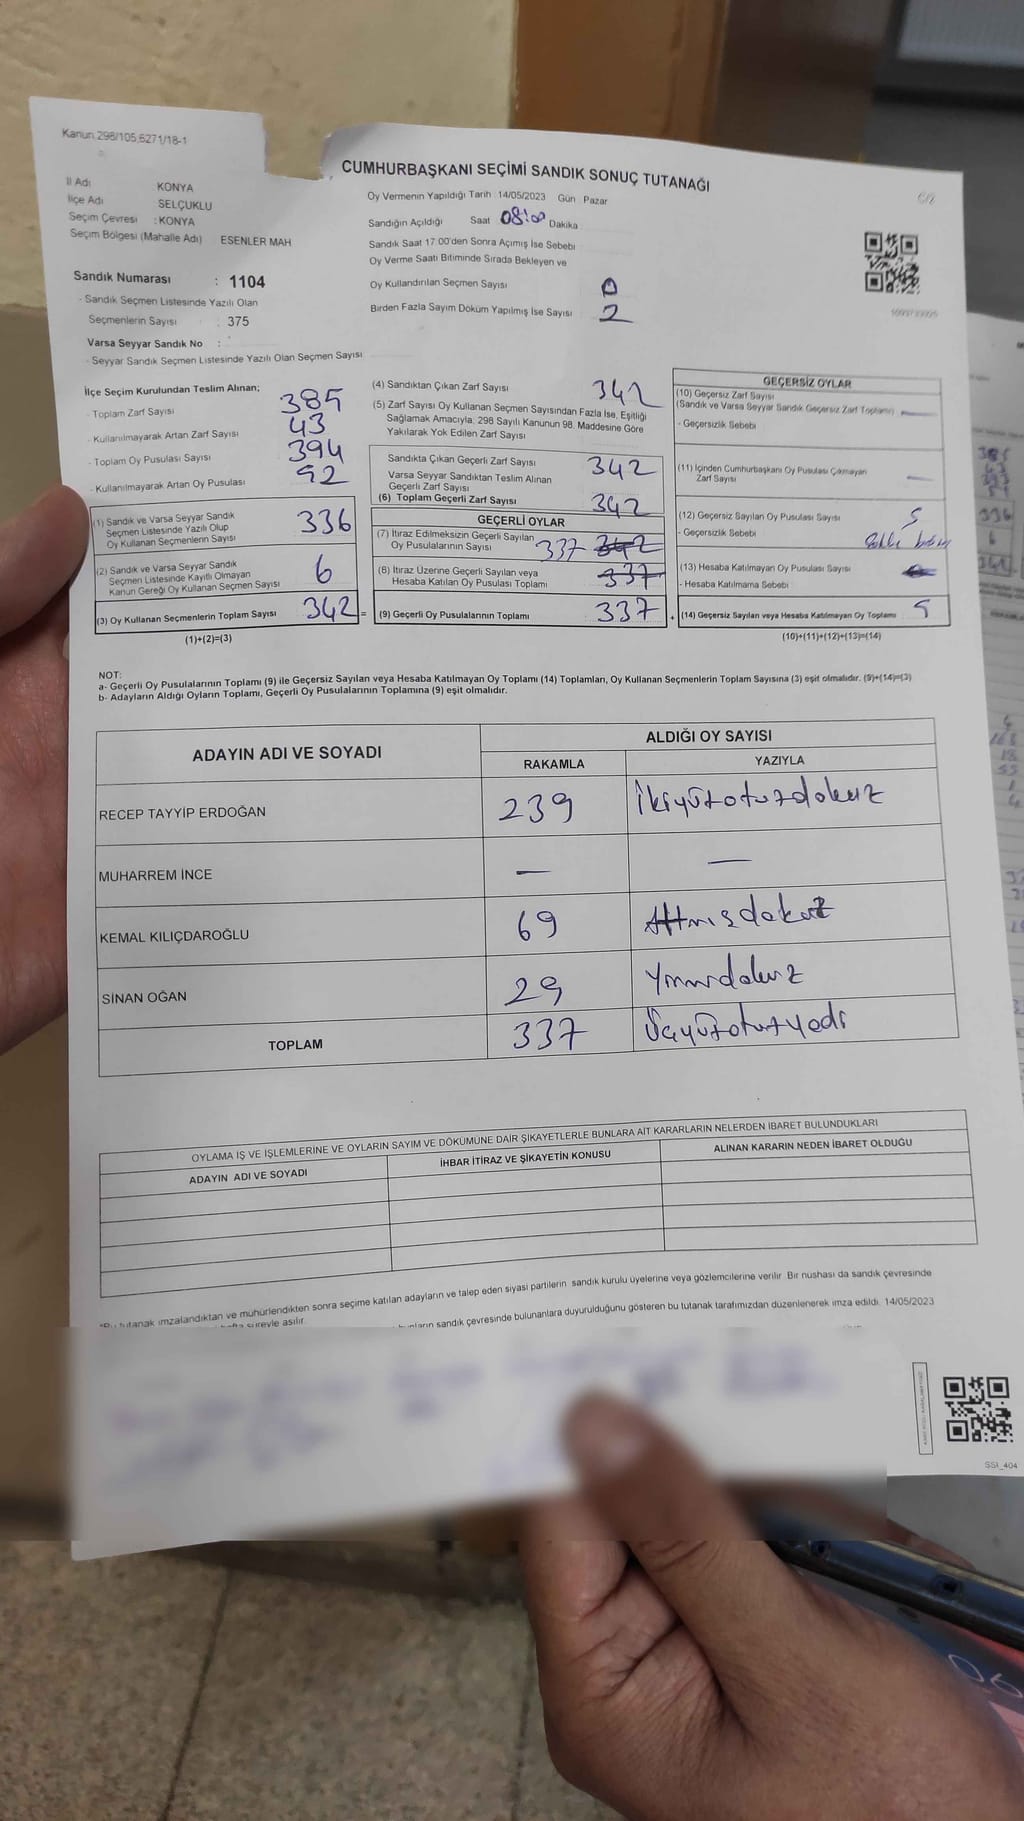 Kanun 298/105,6271/18-1
CUMHURBAŞKANI SEÇİMİ SANDIK SONUÇ TUTANAĞI
İl Adı KONYA
İlçe Adı SELÇUKLU
Seçim Çevresi : KONYA
Seçim Bölgesi (Mahalle Adı) : ESENLER MAH
Oy Vermenin Yapıldığı Tarih 14/05/2023 Gün Pazar
Sandığın Açıldığı Saat 08:00 Dakika
Sandık Saat 17.00'den Sonra Açımış İse Sebebi
Oy Verme Saati Bitiminde Sırada Bekleyen ve
Oy Kullandırılan Seçmen Sayısı 0
Birden Fazla Sayım Döküm Yapılmış İse Sayısı 2
Sandık Numarası : 1104
- Sandık Seçmen Listesinde Yazılı Olan
Seçmenlerin Sayısı : 375
Varsa Seyyar Sandık No :
- Seyyar Sandık Seçmen Listesinde Yazılı Olan Seçmen Sayısı
İlçe Seçim Kurulundan Teslim Alınan;
- Toplam Zarf Sayısı 385
- Kullanılmayarak Artan Zarf Sayısı 43
- Toplam Oy Pusulası Sayısı 394
- Kullanılmayarak Artan Oy Pusulası 92
(1) Sandık ve Varsa Seyyar Sandık
Seçmen Listesinde Yazılı Olup
Oy Kullanan Seçmenlerin Sayısı 336
(2) Sandık ve Varsa Seyyar Sandık
Seçmen Listesinde Kayıtlı Olmayan
Kanun Gereği Oy Kullanan Seçmen Sayısı 6
(3) Oy Kullanan Seçmenlerin Toplam Sayısı 342 =
(1)+(2)=(3)
(4) Sandıktan Çıkan Zarf Sayısı 342
(5) Zarf Sayısı Oy Kullanan Seçmen Sayısından Fazla İse, Eşitliği
Sağlamak Amacıyla, 298 Sayılı Kanunun 98. Maddesine Göre
Yakılarak Yok Edilen Zarf Sayısı
Sandıkta Çıkan Geçerli Zarf Sayısı 342
Varsa Seyyar Sandıktan Teslim Alınan
Geçerli Zarf Sayısı
(6) Toplam Geçerli Zarf Sayısı 342
GEÇERLİ OYLAR
(7) İtiraz Edilmeksizin Geçerli Sayılan
Oy Pusulalarının Sayısı 337 342
(8) İtiraz Üzerine Geçerli Sayılan veya
Hesaba Katılan Oy Pusulası Toplamı 337
(9) Geçerli Oy Pusulalarının Toplamı 337 +
GEÇERSİZ OYLAR
(10) Geçersiz Zarf Sayısı
(Sandık ve Varsa Seyyar Sandık Geçersiz Zarf Toplamı) —
- Geçersizlik Sebebi
(11) İçinden Cumhurbaşkanı Oy Pusulası Çıkmayan
Zarf Sayısı —
(12) Geçersiz Sayılan Oy Pusulası Sayısı 5
- Geçersizlik Sebebi
(13) Hesaba Katılmayan Oy Pusulası Sayısı
- Hesaba Katılmama Sebebi
(14) Geçersiz Sayılan veya Hesaba Katılmayan Oy Toplamı 5
(10)+(11)+(12)+(13)=(14)
NOT:
a- Geçerli Oy Pusulalarının Toplamı (9) ile Geçersiz Sayılan veya Hesaba Katılmayan Oy Toplamı (14) Toplamları, Oy Kullanan Seçmenlerin Toplam Sayısına (3) eşit olmalıdır. (9)+(14)=(3)
b- Adayların Aldığı Oyların Toplamı, Geçerli Oy Pusulalarının Toplamına (9) eşit olmalıdır.
ADAYIN ADI VE SOYADI ALDIĞI OY SAYISI
RAKAMLA YAZIYLA
RECEP TAYYİP ERDOĞAN 239 İkiyüzotuzdokuz
MUHARREM İNCE — —
KEMAL KILIÇDAROĞLU 69 Altmışdokuz
SİNAN OĞAN 29 Yirmidokuz
TOPLAM 337 Üçyüzotuzyedi
OYLAMA İŞ VE İŞLEMLERİNE VE OYLARIN SAYIM VE DÖKÜMÜNE DAİR ŞİKAYETLERLE BUNLARA AİT KARARLARIN NELERDEN İBARET BULUNDUKLARI
ADAYIN ADI VE SOYADI İHBAR İTİRAZ VE ŞİKAYETİN KONUSU ALINAN KARARIN NEDEN İBARET OLDUĞU
*Bu tutanak imzalandıktan ve mühürlendikten sonra seçime katılan adayların ve talep eden siyasi partilerin sandık kurulu üyelerine veya gözlemcilerine verilir. Bir nushası da sandık çevresinde
süreyle asılır.
sandık çevresinde bulunanlara duyurulduğunu gösteren bu tutanak tarafımızdan düzenlenerek imza edildi. 14/05/2023
SSI_404